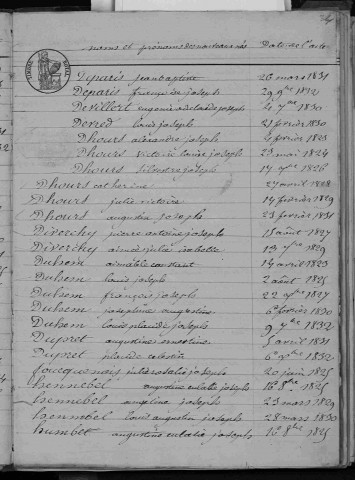 noms et prénoms des nouveaux nés Date de l'acte
Deparis jean baptiste 26 mars 1831
Deparis françois joseph 29 9bre 1832
Devillers eugenie adelaide joseph 4 7bre 1830
Devred louis joseph 21 fevrier 1830
Dhours alexandre joseph 4 fevrier 1823
Dhours victoire louise joseph 23 mai 1824
Dhours silvestre joseph 14 9bre 1826
Dhours catherine 27 avril 1828
Dhours julie victoire 14 fevrier 1829
Dhours augustin joseph 23 fevrier 1831
Diverchy pierre antoine joseph 15 août 1827
Diverchy aimée julie isabelle 13 7bre 1829
Duhem aimable constant 14 avril 1823
Duhem louis joseph 2 août 1825
Duhem françois joseph 22 9bre 1827
Duhem josephine augustine 6 fevrier 1830
Duhem louis placide joseph 9 7bre 1832
Dupret augustine ernestine 5 avril 1831
Dupret placide celestin 6 9bre 1832
foucquenais joseph 20 juin 1825
hennebel augustine eulalie joseph 16 8bre 1825
hennebel angeline joseph 23 mars 1829
hennebel louis augustin joseph 28 mars 1830
humbet augustine eulalie joseph 16 8bre 1825